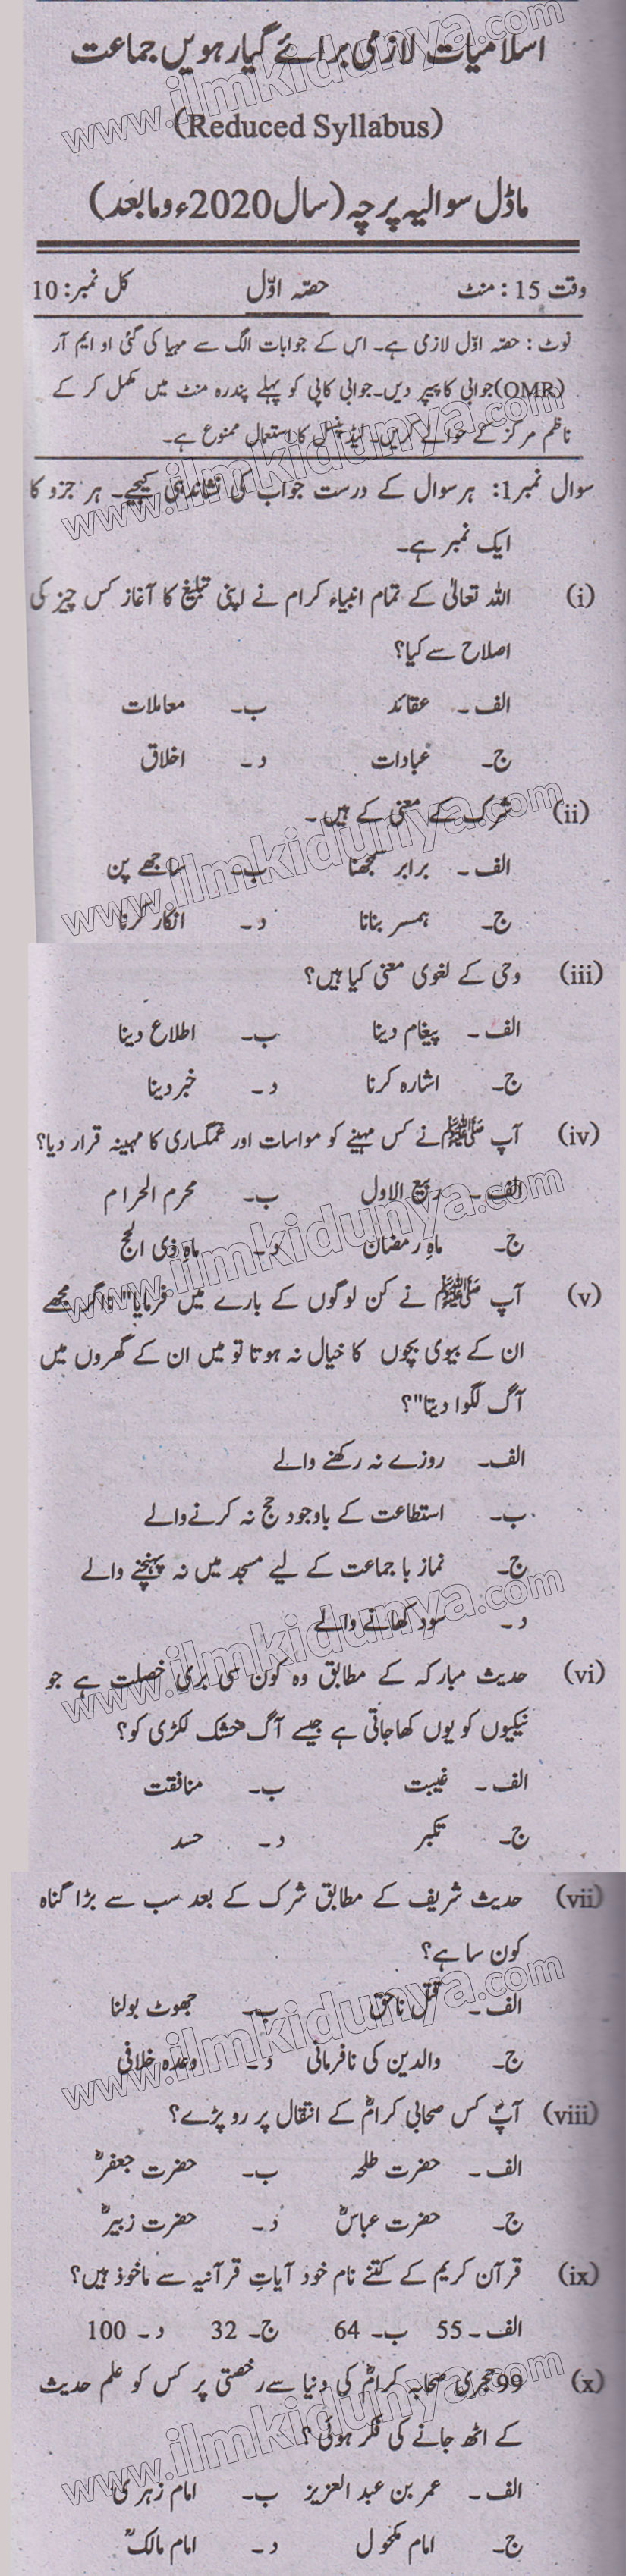 اسلامیات لازمی برائے گیارہویں جماعت
(Reduced Syllabus)
ماڈل سوالیہ پرچہ (سال 2020ء و مابعد)
وقت 15 : منٹ حصّہ اوّل کل نمبر: 10
نوٹ : حصّہ اوّل لازمی ہے۔ اس کے جوابات الگ سے مہیا کی گئی او ایم آر
(OMR) جوابی کاپیپر دیں۔ جوابی کاپی کو پہلے پندرہ منٹ میں مکمل کر کے
ناظم مرکز کے حوالے کریں۔ لیڈ پنسل کا استعمال ممنوع ہے۔
سوال نمبر1: ہر سوال کے درست جواب کی نشاندہی کیجیے۔ ہر جزو کا
ایک نمبر ہے۔
(i) اللہ تعالیٰ کے تمام انبیاء کرام نے اپنی تبلیغ کا آغاز کس چیز کی
اصلاح سے کیا؟
الف ۔ عقائد ب۔ معاملات
ج۔ عبادات د ۔ اخلاق
(ii) شرک کے معنی کے ہیں۔
الف ۔ برابر سمجھنا ب۔ ساجھے پن
ج۔ ہمسر بنانا د ۔ انکار کرنا
(iii) وحی کے لغوی معنی کیا ہیں؟
الف ۔ پیغام دینا ب۔ اطلاع دینا
ج۔ اشارہ کرنا د ۔ خبر دینا
(iv) آپ ﷺ نے کس مہینے کو مواسات اور غمگساری کا مہینہ قرار دیا؟
الف ۔ ربیع الاول ب۔ محرم الحرام
ج۔ ماہِ رمضان د ۔ ماہِ ذی الحج
(v) آپ ﷺ نے کن لوگوں کے بارے میں فرمایا" :اگر مجھے
ان کے بیوی بچوں کا خیال نہ ہوتا تو میں ان کے گھروں میں
آگ لگوا دیتا"؟
الف۔ روزے نہ رکھنے والے
ب۔ استطاعت کے باوجود حج نہ کرنے والے
ج۔ نماز با جماعت کے لیے مسجد میں نہ پہنچنے والے
د ۔ سود کھانے والے
(vi) حدیث مبارکہ کے مطابق وہ کون سی بری خصلت ہے جو
نیکیوں کو یوں کھا جاتی ہے جیسے آگ خشک لکڑی کو؟
الف ۔ غیبت ب۔ منافقت
ج۔ تکبر د ۔ حسد
(vii) حدیث شریف کے مطابق شرک کے بعد سب سے بڑا گناہ
کون سا ہے؟
الف ۔ قتل ناحق ب۔ جھوٹ بولنا
ج۔ والدین کی نافرمانی د ۔ وعدہ خلافی
(viii) آپؐ کس صحابی کرامؓ کے انتقال پر رو پڑے؟
الف ۔ حضرت طلحہ ب۔ حضرت جعفرؓ
ج۔ حضرت عباسؓ د ۔ حضرت زبیرؓ
(ix) قرآن کریم کے کتنے نام خود آیاتِ قرآنیہ سے ماخوذ ہیں؟
الف ۔ 55 ب۔ 64 ج۔ 32 د ۔ 100
(x) 99ہجری صحابہ کرامؓ کی دنیا سے رخصتی پر کس کو علم حدیث
کے اٹھ جانے کی فکر ہوئی؟
الف ۔ عمر بن عبد العزیز ب۔ امام زہری
ج۔ امام مکحول د ۔ امام مالکؒ
www.ilmkidunya.com
www.ilmkidunya.com
www.ilmkidunya.com
www.ilmkidunya.com
www.ilmkidunya.com
www.ilmkidunya.com
www.ilmkidunya.com